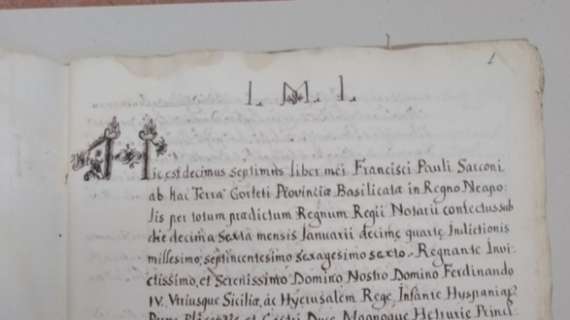 1
I. M. I.
Hic est decimus septimus liber mei Francisci Pauli Sarconi
ab hac Terra Gorleti Provinciæ Basilicata in Regno Neapo:
lis per totum prædictum Regnum Regii Notarii confectus sub
die decima sexta mensis Januarii decimę quartę Indictionis
millesimo, septincentesimo sexagesimo sexto. Regnante Invi
ctissimo, et Serenissimo Domino Nostro Domino Ferdinando
IV. Vtriusque Siciliæ, ac Hyerusalem Rege, Infante Hyspaniar
Duce et Castri Duce, Magnoque Hetrurię Princi